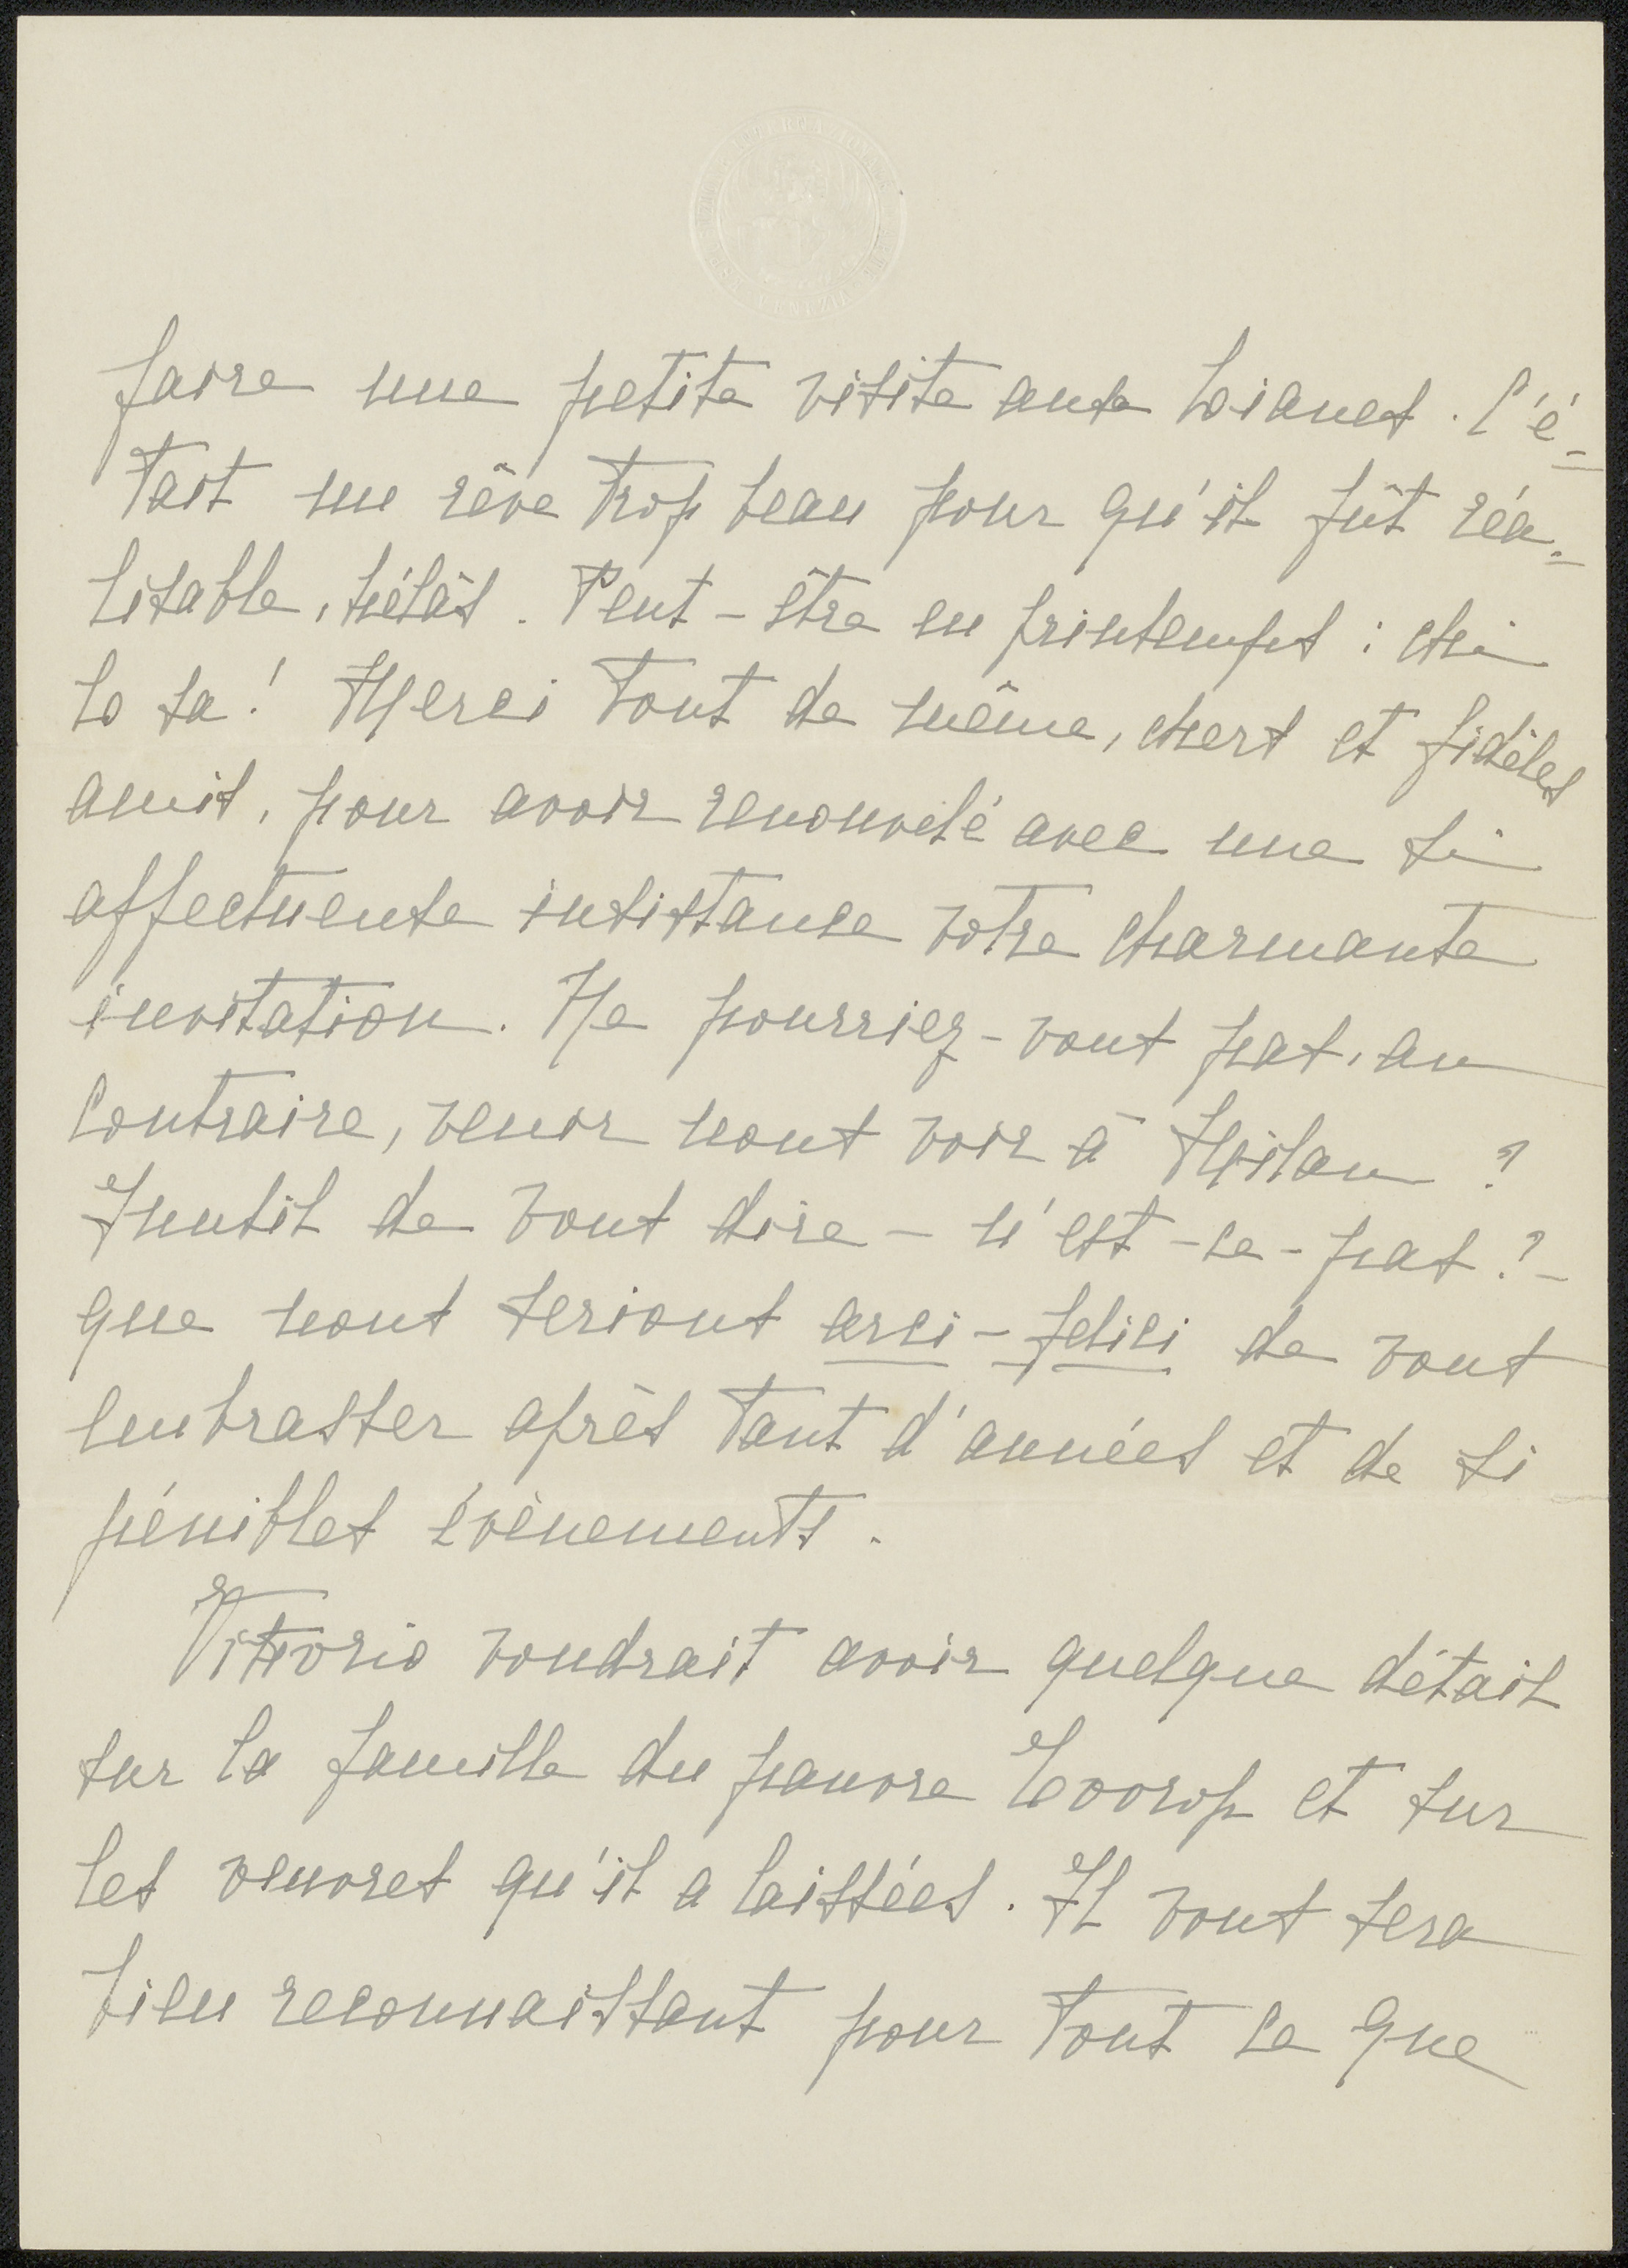 faire une petite visite aux Loianes. C'é-
tait un rêve trop beau pour qu'il fût réa-
lisable, hélàs. Peut-être en printemps: chi
lo sa! Merci tout de même, chers et fidèles
amis, pour avoir renouvelé avec une si
affectueuse insistance votre charmante
invitation. Ne pourriez-vous pas, au
contraire, venir nous voir à Milan?
Inutil de vous dire - n'est-ce-pas?-
que nous serions arci-felici de vous
embrasser après tant d'années et de si
pénibles évènements.
Vittorio voudrait avoir quelque détail
sur la famille du pauvre Toorop et sur
les oeuvres qu'il a laissées. Il vous sera
bien reconnaissant pour tout ce que